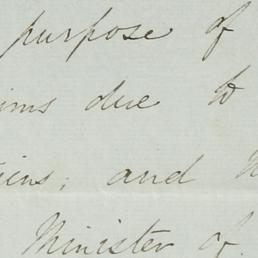 purpose of
ims due to
tiens; and
Minister of